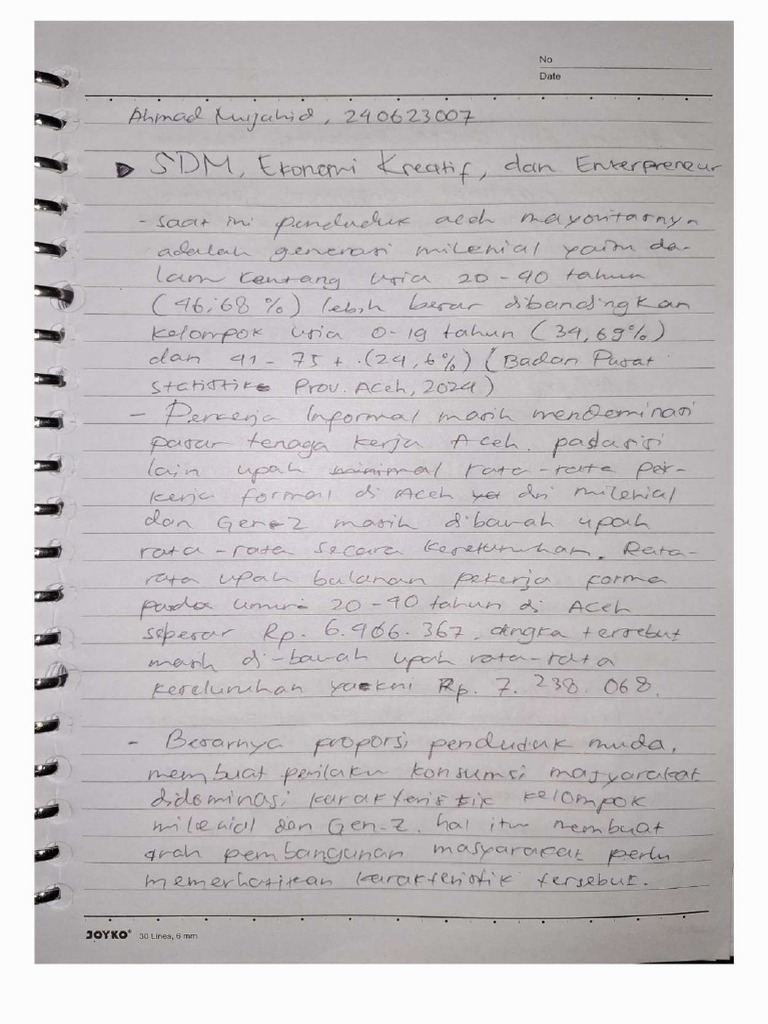 No
Date
Ahmad Mujahid, 240623007
SDM, Ekonomi Kreatif, dan Enterpreneur
- saat ini penduduk aceh mayoritasnya
adalah generasi milenial yaitu da-
lam rentang usia 20-40 tahun
(46,68%) lebih besar dibandingkan
kelompok usia 0-19 tahun (34,69%)
dan 41-75+ (24,6%) (Badan Pusat
Statistik Prov. Aceh, 2024)
- Perkerja Informal masih mendominasi
pasar tenaga kerja Aceh. pada sisi
lain upah minimal rata-rata per-
kerja formal di Aceh dri milenial
dan Gen-Z masih dibawah upah
rata-rata secara keseluruhan. Rata-
rata upah bulanan pekerja forma
pada umur 20-40 tahun di Aceh
sebesar Rp. 6.466.367. angka tersebut
masih di-bawah upah rata-rata
keseluruhan yakni Rp. 7.238.068.
- Besarnya proporsi penduduk muda,
membuat perilaku konsumsi masyarakat
didominasi karakteristik kelompok
milenial dan Gen-Z. hal itu membuat
arah pembangunan masyarakat perlu
memerhatikan karakteristik tersebut.
JOYKO® 30 Lines, 6 mm